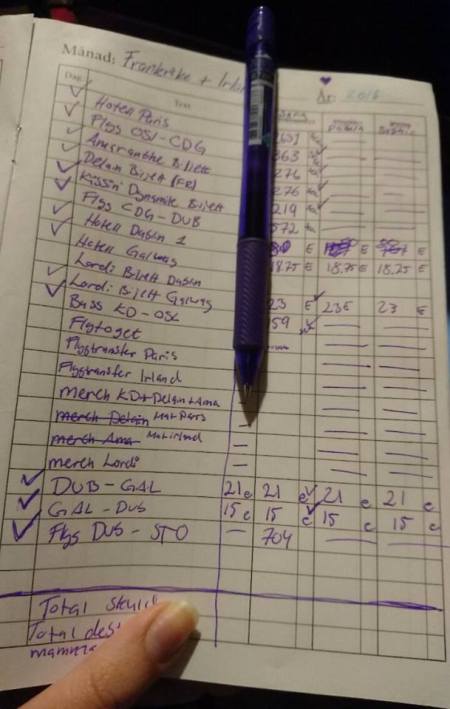 Månad: Frankrike + Irlan
År: 2018
Dag Text
Hotell Paris
Flyg OSL-CDG 651 kr
Amaranthe Biljett 363 kr
Delain Biljett (FR) 276 kr
Kissin' Dynamite Biljett 276 kr
Flyg CDG-DUB 219 kr
Hotell Dublin 1 572 kr
Hotell Galway € € €
Lordi Biljett Dublin 18.75 € 18.75 € 18.75 €
Lordi Biljett Galway 23 € 23 € 23 €
Buss KD-OSL 59 kr
Flytoget
Flygtransfer Paris
Flygtransfer Irland
merch KD+Delain+Ama
merch Delain Mat Paris —
merch Ama Mat irland —
merch Lordi —
DUB-GAL 21 € 21 € 21 € 21 €
GAL-DUB 15 € 15 € 15 € 15 €
Flyg DUB-STO — 704
Total skuld
Total des
mamma